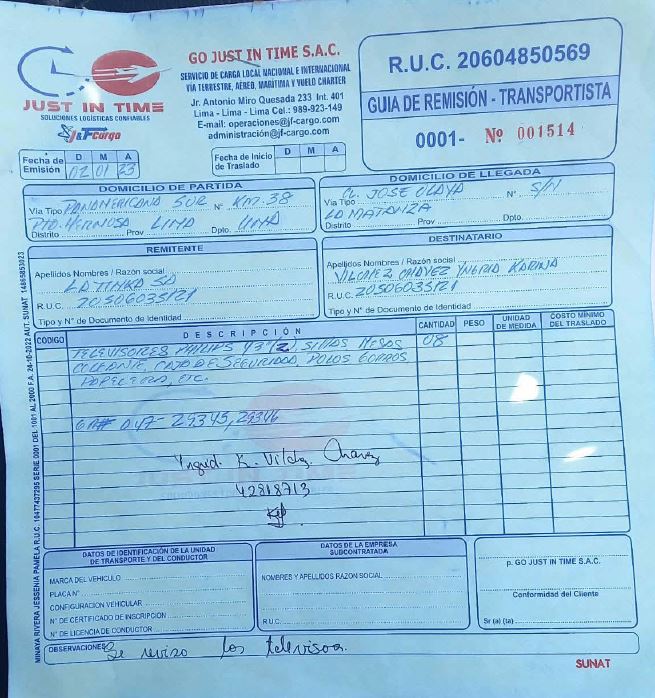 JUST IN TIME
SOLUCIONES LOGÍSTICAS CONFIABLES
J&F Cargo
GO JUST IN TIME S.A.C.
SERVICIO DE CARGA LOCAL NACIONAL E INTERNACIONAL
VÍA TERRESTRE, AÉREO, MARÍTIMA Y VUELO CHARTER
Jr. Antonio Miro Quesada 233 Int. 401
Lima - Lima - Lima Cel.: 989-923-149
E-mail: operaciones@jf-cargo.com
administración@jf-cargo.com
R.U.C. 20604850569
GUIA DE REMISIÓN - TRANSPORTISTA
0001- Nº 001514
Fecha de Emisión D M A
02 01 23
Fecha de Inicio de Traslado D M A
DOMICILIO DE PARTIDA
Vía Tipo PANAMERICANA SUR Nº KM.38
PTO. HERMOSA LIMA LIMA
Distrito Prov. Dpto.
DOMICILIO DE LLEGADA
Vía Tipo CL. JOSE OLAYA Nº S/N
LA MATANZA
Distrito Prov. Dpto.
REMITENTE
Apellidos Nombres / Razón social
LA TINKA SA
R.U.C. 20506035121
Tipo y N° de Documento de Identidad
DESTINATARIO
Apellidos Nombres / Razón social
VILCHEZ CHAVEZ YNGRID KARINA
R.U.C. 20506035121
Tipo y N° de Documento de Identidad
CÓDIGO DESCRIPCIÓN CANTIDAD PESO UNIDAD DE MEDIDA COSTO MÍNIMO DEL TRASLADO
TELEVISORES PHILIPS 43"(2), SILLAS MESAS 08
COLGANTE, CAJA DE SEGURIDAD, POLOS GORROS
PAPELERA, ETC.
GR# 047- 29345, 29346
Yngrid K. Vilchez Chavez
42818713
DATOS DE IDENTIFICACIÓN DE LA UNIDAD DE TRANSPORTE Y DEL CONDUCTOR
MARCA DEL VEHICULO
PLACA N°
CONFIGURACIÓN VEHICULAR
N° DE CERTIFICADO DE INSCRIPCION
N° DE LICENCIA DE CONDUCTOR
DATOS DE LA EMPRESA SUBCONTRATADA
NOMBRES Y APELLIDOS RAZON SOCIAL
R.U.C.
p. GO JUST IN TIME S.A.C.
Conformidad del Cliente
Sr (a) (ta)
OBSERVACIONES Se reviso los televisor.
SUNAT
MINAYA RIVERA JESSENIA PAMELA R.U.C. 10477437295 SERIE 0001 DEL 1001 AL 2000 F.A. 24-10-2022 AUT. SUNAT 14865853023